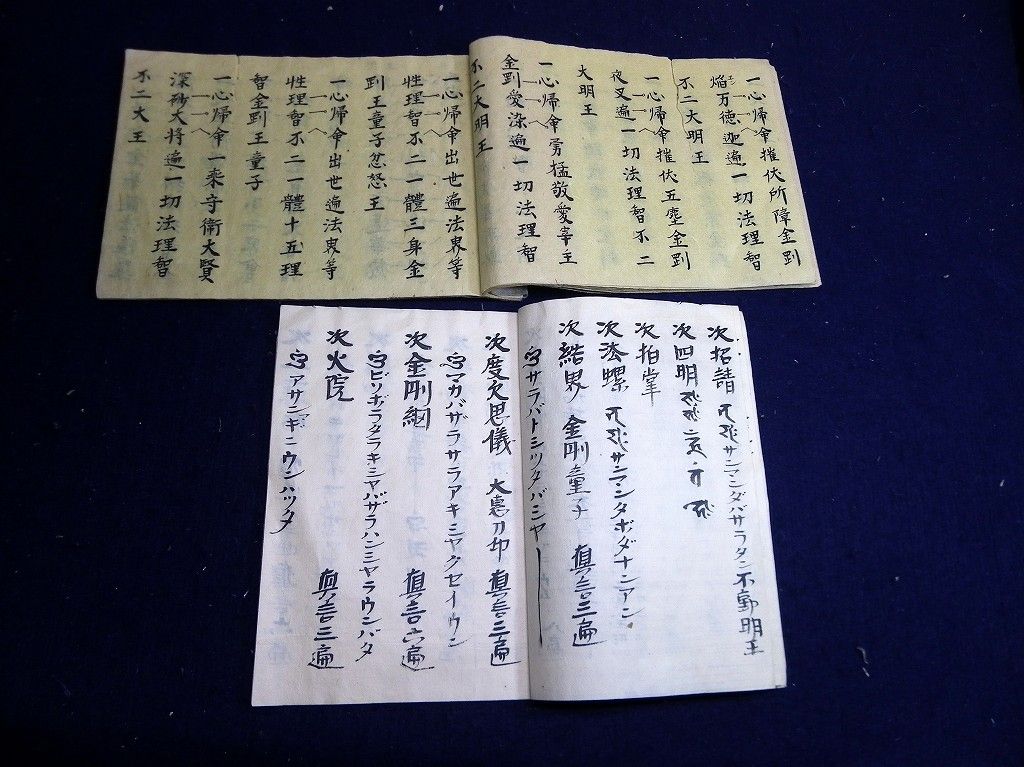 一心歸命摧伏所障金剛
焔万德迦遍一切法理智
不二大明王
一心歸命摧伏五塵金剛
夜叉遍一切法理智不二
大明王
一心歸命勇猛敬愛宰主
金剛愛染遍一切法理智
不二大明王
一心歸命出世遍法界等
性理智不二一體三身金
剛王童子忿怒王
一心歸命出世遍法界等
性理智不二一體十五理
智金剛王童子
一心歸命一乘守衛大賢
深砂大将遍一切法理智
不二大王
次招請 サンマンダバサラタン不動明王
次四明
次拍掌
次法螺 サンマンタボダナンアン
次結界 金剛童子 真言三遍
サラバトシツタバシヤー
次度欠思儀 大惠刀印 真言三遍
マカバザラサラアキシヤクセイウン
次金剛網 真言六遍
ビソホラダラキシヤバザラハンシヤラウンハタ
次火院 真言三遍
アサンギニウンハツタ